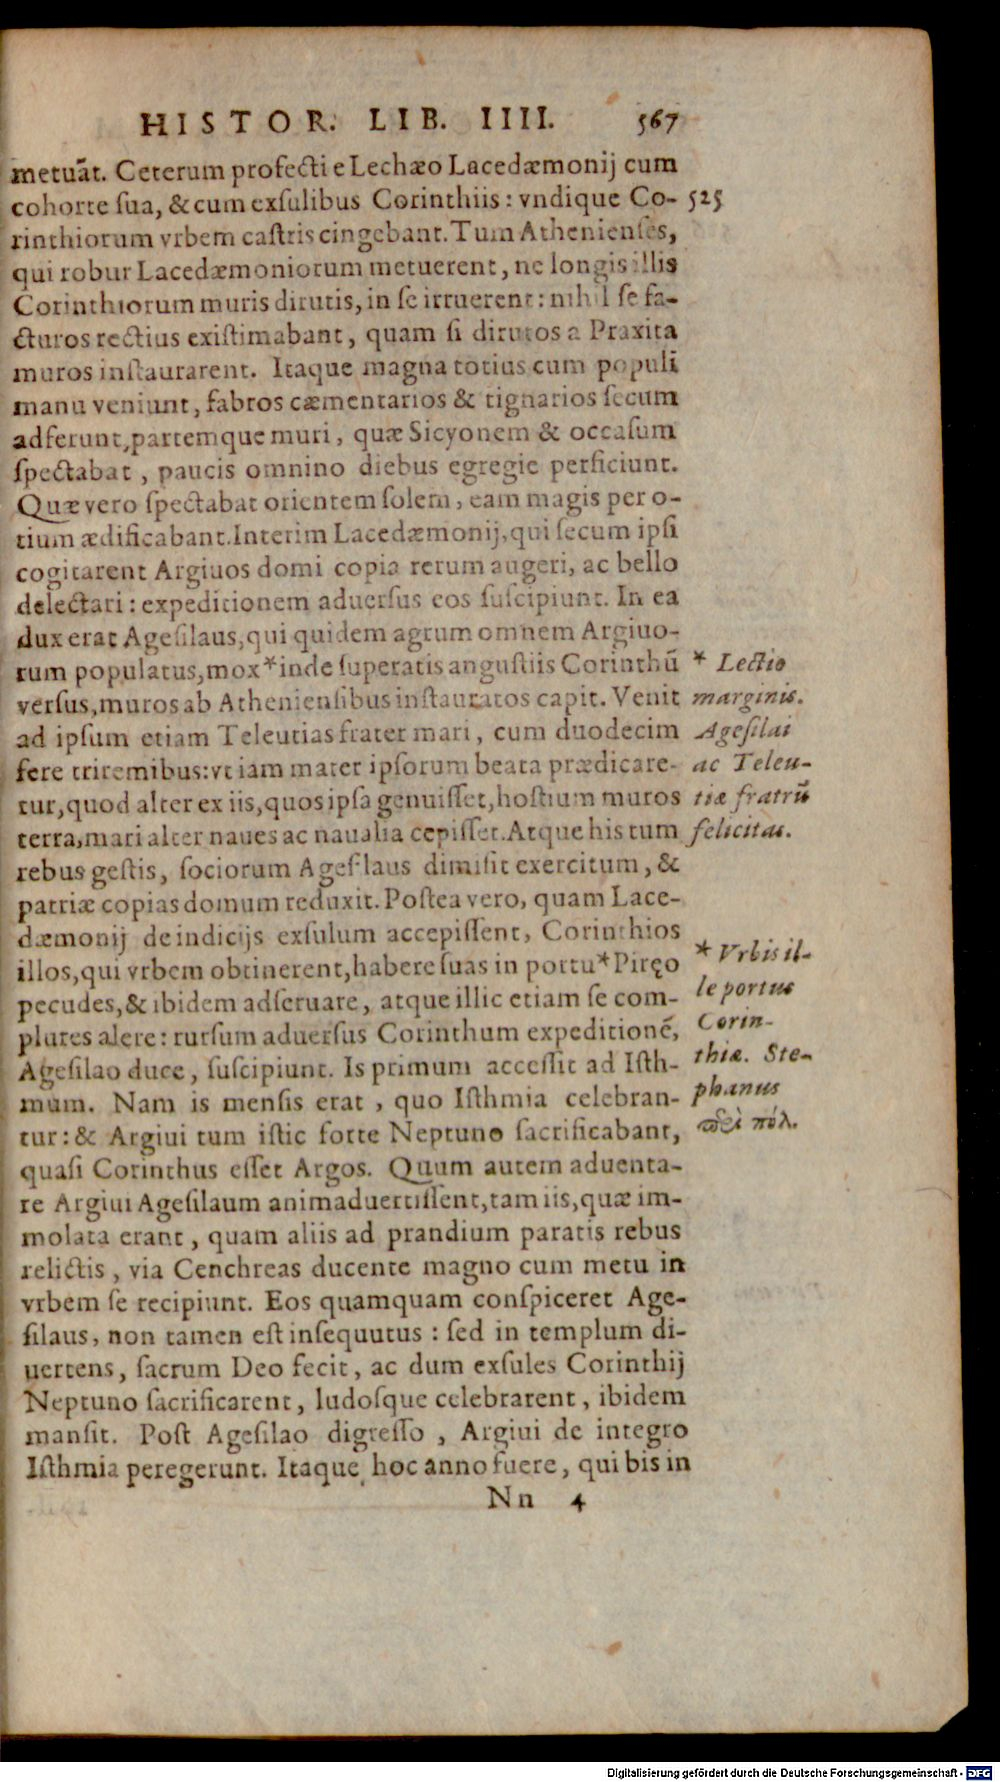 HISTOR. LIB. IIII. 567
metuāt. Ceterum profecti e Lechæo Lacedæmonij cum
cohorte ſua, & cum exſulibus Corinthiis: vndique Co- 525
rinthiorum vrbem caſtris cingebant. Tum Athenienſes,
qui robur Lacedæmoniorum metuerent, ne longis illis
Corinthiorum muris dirutis, in ſe irruerent: nihil ſe fa-
cturos rectius exiſtimabant, quam ſi dirutos a Praxita
muros inſtaurarent. Itaque magna totius cum populi
manu veniunt, fabros cæmentarios & tignarios ſecum
adferunt, partemque muri, quæ Sicyonem & occaſum
ſpectabat, paucis omnino diebus egregie perficiunt.
Quæ vero ſpectabat orientem ſolem, eam magis per o-
tium ædificabant. Interim Lacedæmonij, qui ſecum ipſi
cogitarent Argiuos domi copia rerum augeri, ac bello
delectari: expeditionem aduerſus eos ſuſcipiunt. In ea
dux erat Ageſilaus, qui quidem agrum omnem Argiuo-
rum populatus, mox * inde ſuperatis anguſtiis Corinthū
verſus, muros ab Athenienſibus inſtauratos capit. Venit
ad ipſum etiam Teleutias frater mari, cum duodecim
fere triremibus: vt iam mater ipſorum beata prædicare-
tur, quod alter ex iis, quos ipſa genuiſſet, hoſtium muros
terra, mari alter naues ac naualia cepiſſet. Atque his tum
rebus geſtis, ſociorum Ageſilaus dimiſit exercitum, &
patriæ copias domum reduxit. Poſtea vero, quam Lace-
dæmonij de indicijs exſulum accepiſſent, Corinthios
illos, qui vrbem obtinerent, habere ſuas in portu * Piręo
pecudes, & ibidem adſeruare, atque illic etiam ſe com-
plures alere: rurſum aduerſus Corinthum expeditionē,
Ageſilao duce, ſuſcipiunt. Is primum acceſſit ad Iſth-
mum. Nam is menſis erat, quo Iſthmia celebran-
tur: & Argiui tum iſtic forte Neptuno ſacrificabant,
quaſi Corinthus eſſet Argos. Quum autem aduenta-
re Argiui Ageſilaum animaduertiſſent, tam iis, quæ im-
molata erant, quam aliis ad prandium paratis rebus
relictis, via Cenchreas ducente magno cum metu in
vrbem ſe recipiunt. Eos quamquam conſpiceret Age-
ſilaus, non tamen eſt inſequutus: ſed in templum di-
uertens, ſacrum Deo fecit, ac dum exſules Corinthij
Neptuno ſacrificarent, ludoſque celebrarent, ibidem
manſit. Poſt Ageſilao digreſſo, Argiui de integro
Iſthmia peregerunt. Itaque hoc anno fuere, qui bis in
Nn 4
* Lectio
marginis.
Ageſilai
ac Teleu-
tiæ fratrū
felicitas.
* Vrbis il-
le portus
Corin-
thiæ. Ste-
phanus
περὶ πόλ.
Digitalisierung gefördert durch die Deutsche Forschungsgemeinschaft - DFG